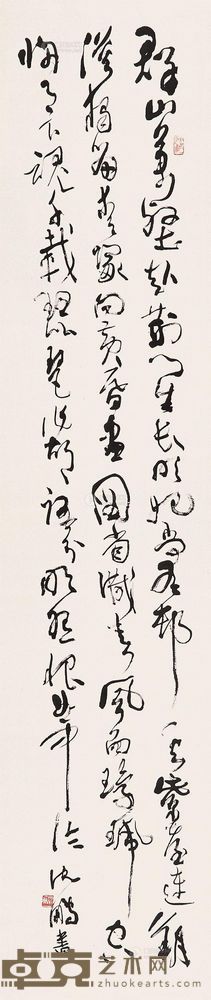 群山萬壑赴荆门生长明妃尚有邨一去紫臺連朔
漠獨留青冢向黄昏畫図省識春風面環珮空
歸月下魂千載琵琶作胡語分明怨恨曲中论沈鹏書
卓克艺术网
www.zhuokearts.com